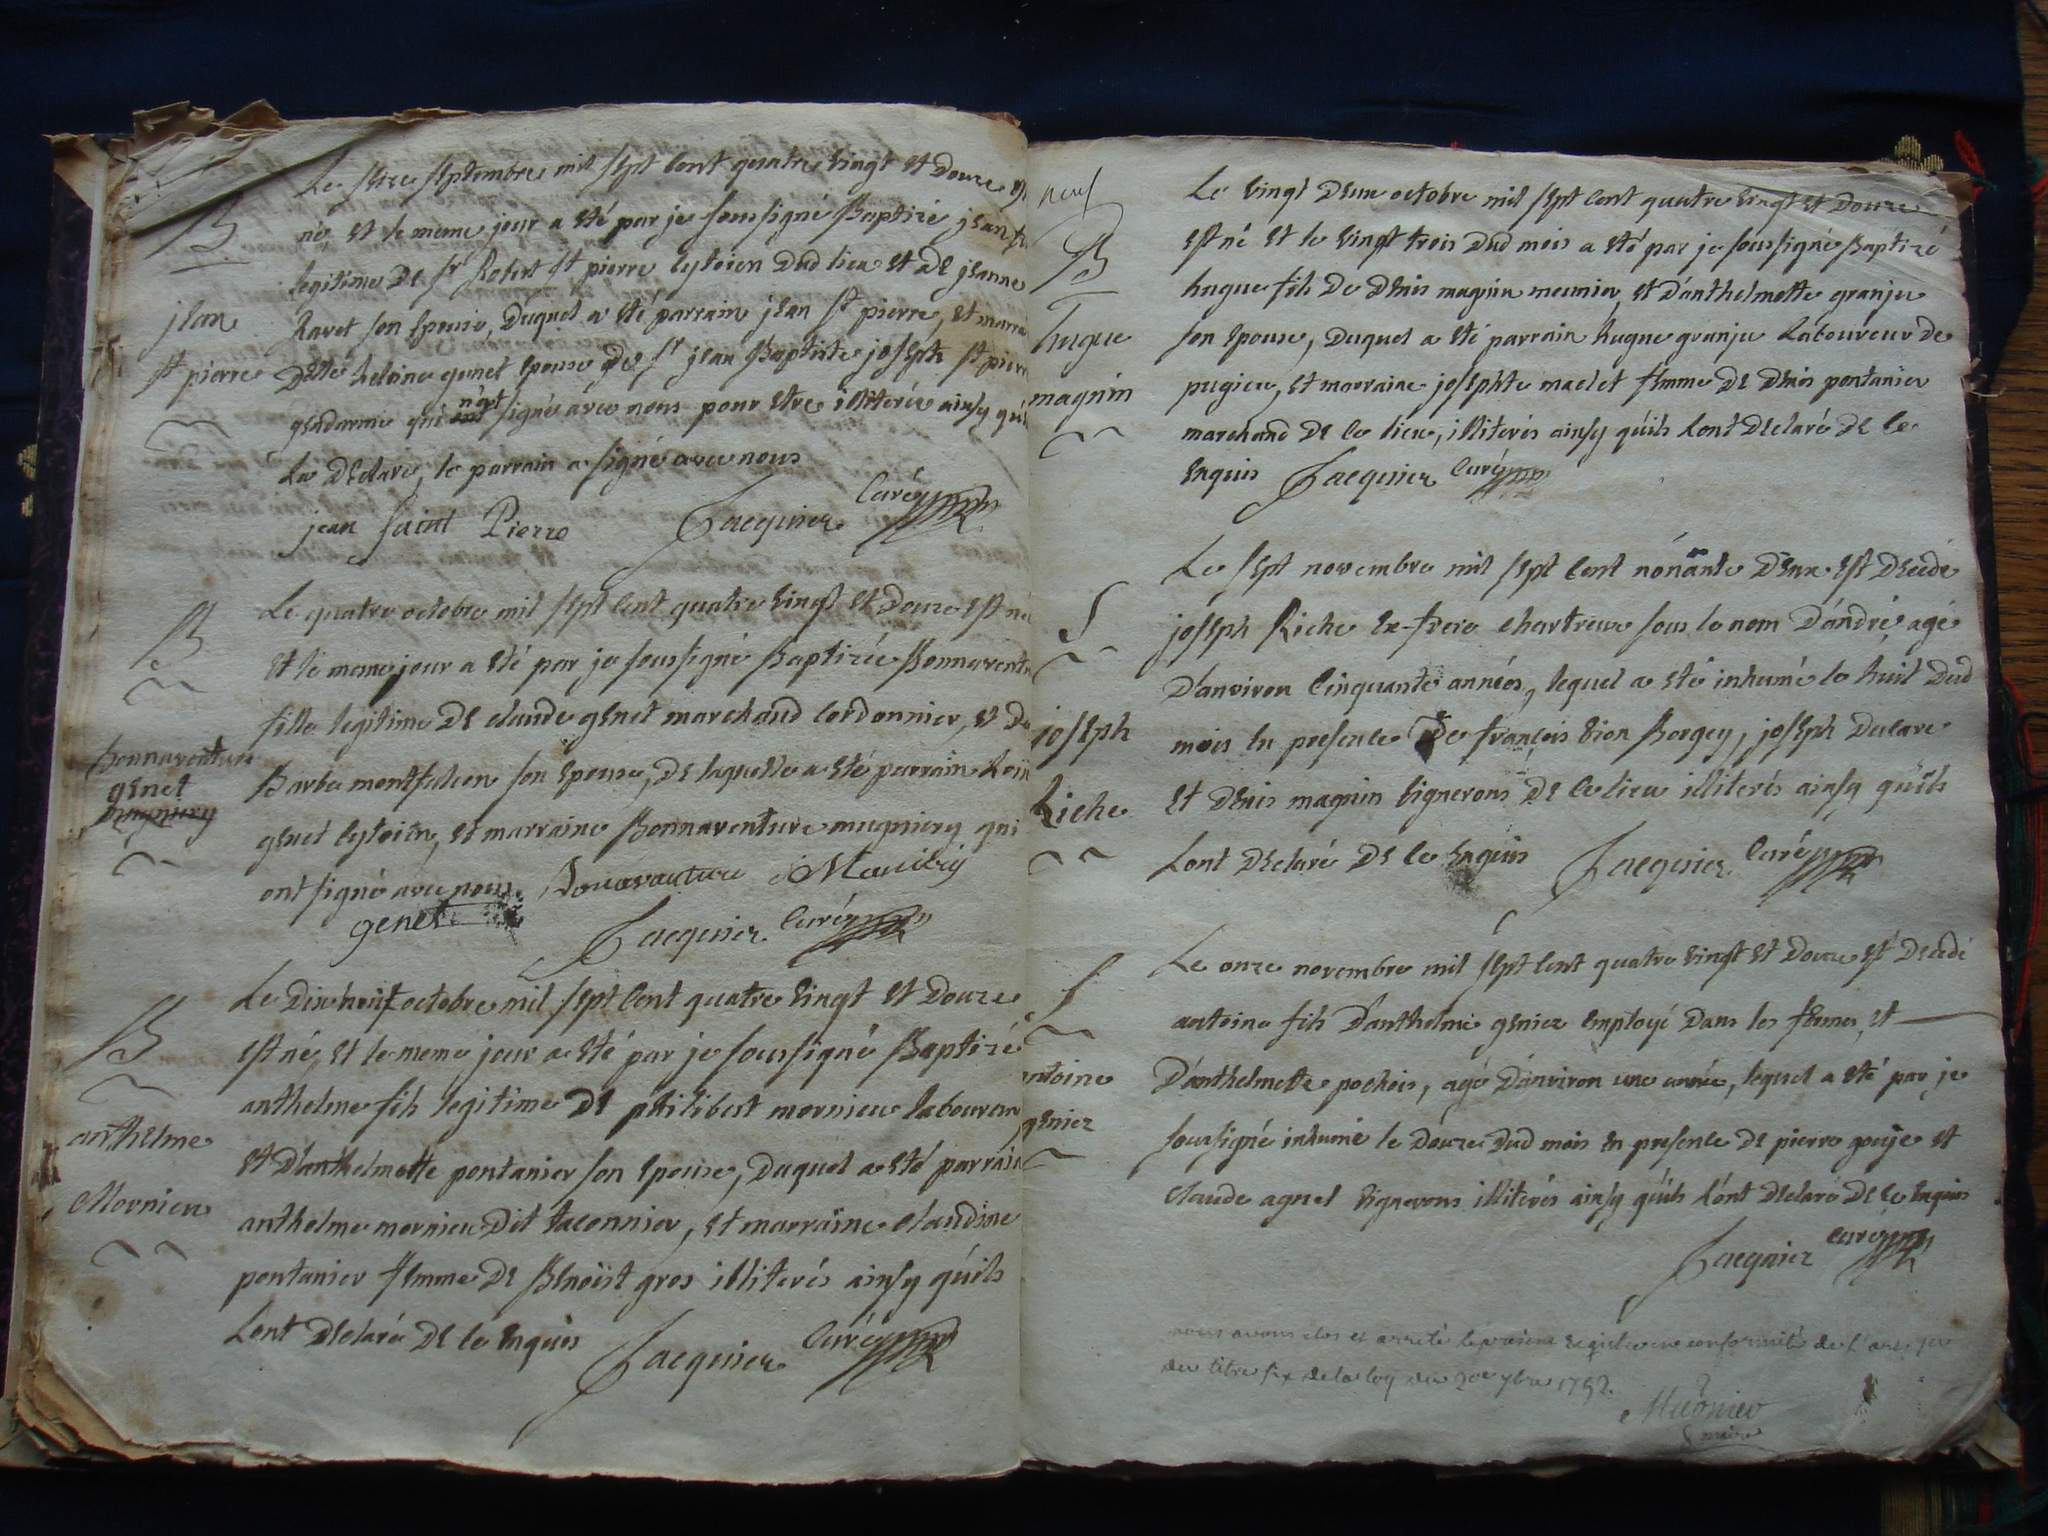 Le seize septembre mil sept cent quatre vingt et douze est
né, et le meme jour a eté par je soussigné Baptizé jean
legitime de sr Robert st pierre cytoien dud lieu et de jeanne
Ravet son epouse, duquel a eté parrain jean st pierre, et marraine
heleine genet epouse de sr jean Baptiste joseph st pierre
gendarme qui n'ont signé avec nous pour etre illiterée ainsy qu'elle
La declaré, le parrain a signé avec nous
jean saint Pierre Jacquier Curé
B
jean
st pierre
Le quatre octobre mil sept cent quatre vingt et douze est née
et le meme jour a eté par je soussigné Baptizée Bonnaventure
fille legitime de claude genet marchand cordonnier, et de
Barbe montfalcon son epouse, de laquelle a eté parrain
genet cytoien, et marraine Bonnaventure mugniery qui
ont signé avec nous. Bonavanture
genet Jacquier Curé
B
Bonnaventure
genet
mugniery
Le dix huit octobre mil sept cent quatre vingt et douze
est né, et le meme jour a eté par je soussigné Baptizé
anthelme fils legitime de philibert mornieu laboureur
et d'anthelmette pontanier son epouse, duquel a eté parrain
anthelme mornieu dit taconnier, et marraine claudine
pontanier femme de Benoist gros illiterés ainsy qu'ils
Lont declaré de ce enquis Jacquier Curé
B
anthelme
Mornieu
neuf
Le vingt deux octobre mil sept cent quatre vingt et douze
est né et le vingt trois dud mois a eté par je soussigné Baptizé
hugue fils de denis magnin meunier, et d'anthelmette granju
son epouse, duquel a eté parrain hugue granju Laboureur de
pugieu, et marraine josephte maclet femme de denis pontanier
marchand de ce lieu, illiterés ainsy qu'ils Lont declaré de ce
enquis Jacquier Curé
B
hugue
magnin
Le sept novembre mil sept cent nonante deux est decedé
joseph Riche Ex-frere chartreux sous le nom d'andré, agé
d'anviron cinquante années, lequel a eté inhumé le huit dud
mois en presence de françois vion Borgey, joseph
et denis magnin vignerons de ce lieu illiterés ainsy qu'ils
Lont declaré de ce enquis Jacquier Curé
S
joseph
Riche
Le onze novembre mil sept cent quatre vingt et douze est decedé
antoine fils d'anthelme genier employé dans les fermes, et
d'anthelmette pochois, agé d'anviron une année, lequel a eté par je
soussigné inhumé le douze dud mois en presence de pierre gouje et
claude agnel vignerons illiterés ainsy qu'ils L'ont declaré de ce enquis
Jacquier Curé
S
antoine
genier
nous avons clos et arreté le présent Registre en conformité de l'art. 1er
du titre six de la loy du 20e 7bre 1792.
Mugnier
maire